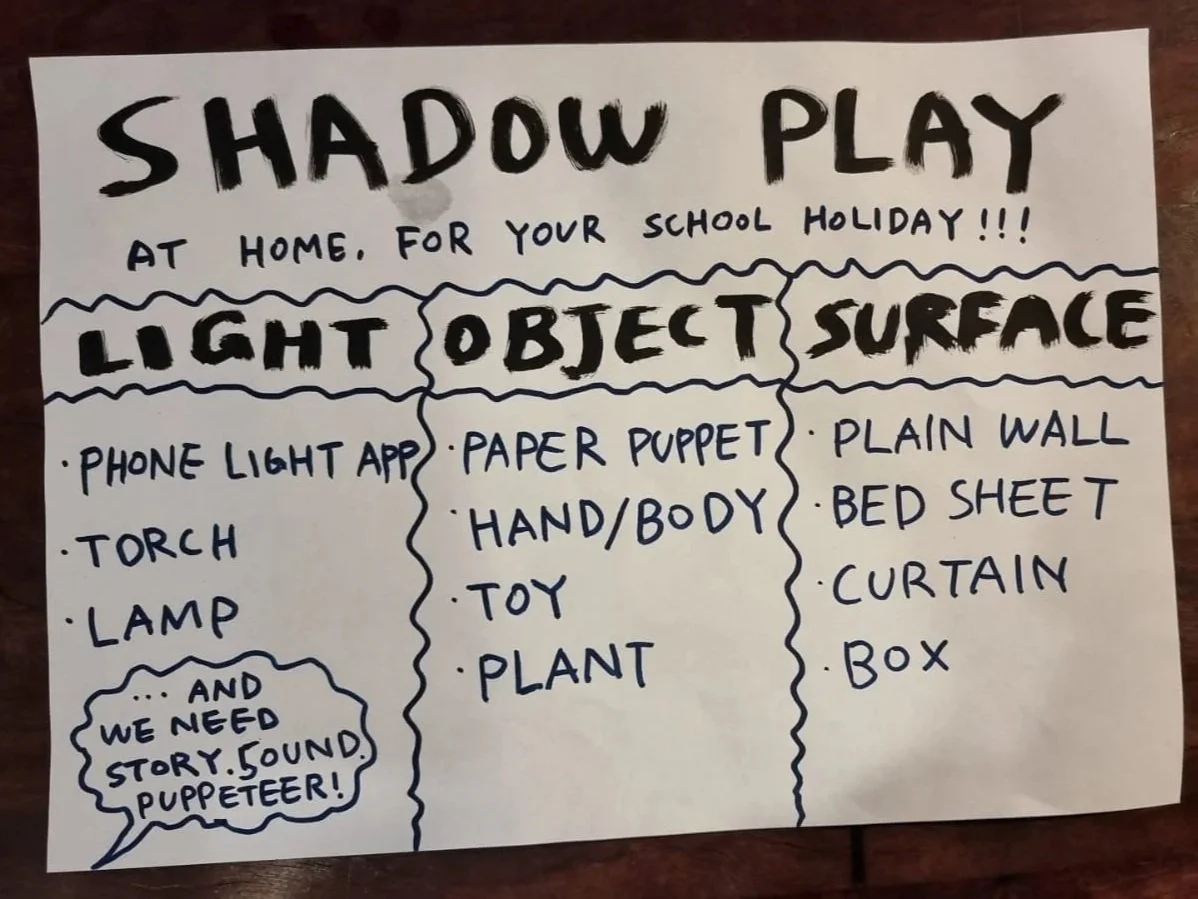 SHADOW PLAY
AT HOME, FOR YOUR SCHOOL HOLIDAY!!!
LIGHT
· PHONE LIGHT APP
· TORCH
· LAMP
... AND
WE NEED
STORY. SOUND.
PUPPETEER!
OBJECT
· PAPER PUPPET
· HAND/BODY
· TOY
· PLANT
SURFACE
· PLAIN WALL
· BED SHEET
· CURTAIN
· BOX